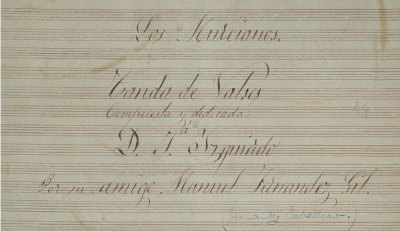 Los Murcianos.
Tanda de Valses
Compuesta y dedicada
á
D. J. Izquierdo
Por su amigo Manuel Fernandez Gil.
(Fernandez Caballero.)